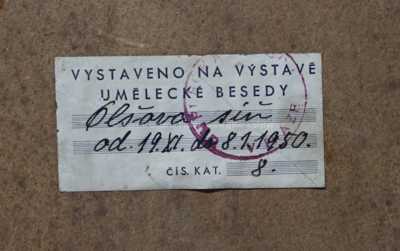 VYSTAVENO NA VÝSTAVĚ
UMĚLECKÉ BESEDY
Alšova síň
od. 19.XI. do 8.1.1950.
ČÍS. KAT. 8.